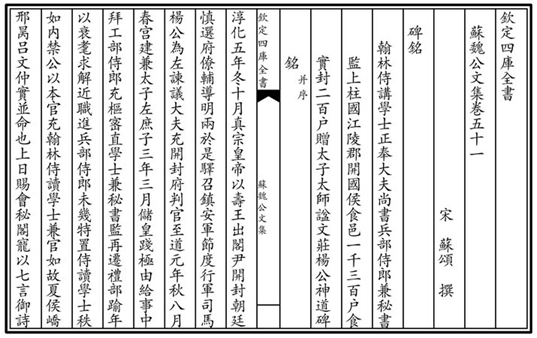 欽定四庫全書
蘇魏公文集卷五十一
宋 蘇頌 撰
碑銘
翰林侍講學士正奉大夫尚書兵部侍郎兼秘書
監上柱國江陵郡開國侯食邑一千三百户食
實封二百户贈太子太師諡文莊楊公神道碑
銘 并序
欽定四庫全書
蘇魏公文集
淳化五年冬十月真宗皇帝以壽王出閣尹開封朝廷
慎選府僚輔導明兩於是驛召鎮安軍節度行軍司馬
楊公為左諫議大夫充開封府判官至道元年秋八月
春宫建兼太子左庶子三年三月儲皇踐極由給事中
拜工部侍郎充樞密直學士兼秘書監再遷禮部踰年
以衰耄求解近職進兵部侍郎未幾特置侍讀學士秩
如内禁公以本官充翰林侍讀學士兼官如故夏侯嶠
邢昺吕文仲實並命也上日賜會秘閣寵以七言御詩